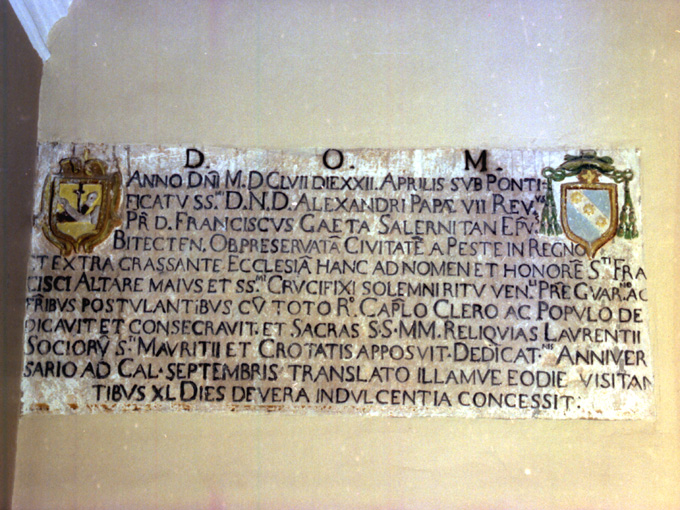 D. O. M.
ANNO DÑI M.DCLVII DIE XXII. APRILIS SVB PONTI-
FICATV SS.MI D.N.D. ALEXANDRI PAPÆ VII REV.VS
PR̃ D. FRANCISCVS GAETA SALERNITAN EPV.S
BITECTEN. OB PRESERVATÃ CIVITATẼ A PESTE IN REGNO
ET EXTRA GRASSANTE ECCLESIÃ HANC AD NOMEN ET HONORẼ S.TI FRA
CISCI ALTARE MAIUS ET SS.MI CRVCIFIXI SOLEMNI RITV VEN. PRE GVAR.NO AC
FR̃IBVS POSTVLANTIBVS CṼ TOTO R.o CAPL̃O CLERO AC POPVLO DE
DICAVIT ET CONSECRAVIT. ET SACRAS S.S. MM. RELIQVIAS LAVRENTII
SOCIORṼ S. MAVRITII ET CROTATIS APPOSVIT. DEDICAT.NIS ANNIVER
SARIO AD CAL. SEPTEMBRIS TRANSLATO ILLAMVE EODIE VISITAN
TIBVS XL DIES DE VERA INDVLCENTIA CONCESSIT.